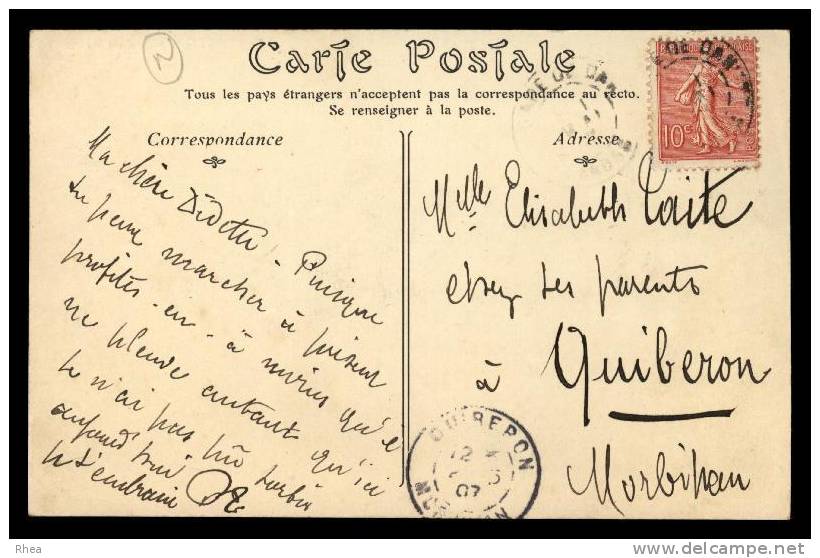 2
Carte Postale
Tous les pays étrangers n'acceptent pas la correspondance au recto.
Se renseigner à la poste.
Correspondance
Adresse
10c
Ma chère Didette - Puisque
tu peux marcher à loisir
profites-en - à moins qu'il
ne pleuve autant qu'ici
Je n'ai pas
aujourd'hui
Je t'embrasse
Melle Elisabeth Taite
chez ses parents
à Quiberon
Morbihan
QUIBERON
12
07
MORBIHAN
Rhea
http://www.delcampe.net